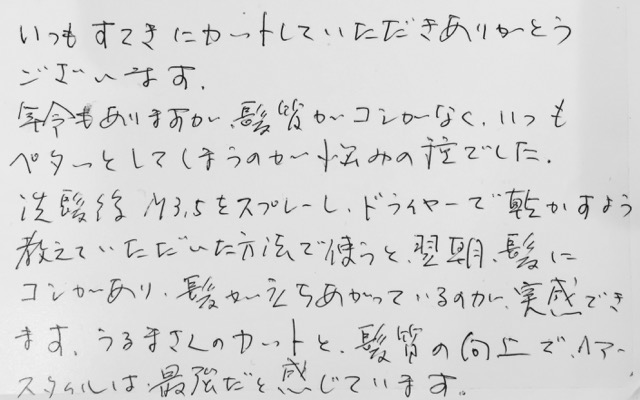 いつもすてきにカットしていただきありがとう
ございます。
年令もありますが、髪質がコシがなく、いつも
ペターッとしてしまうのが悩みの種でした。
洗髪後 M3.5をスプレーし、ドライヤーで乾かすよう
教えていただいた方法で使うと、翌朝、髪に
コシがあり、髪が立ちあがっているのが、実感でき
ます。うるまさんのカットと、髪質の向上で、ヘアー
スタイルは最強だと感じています。